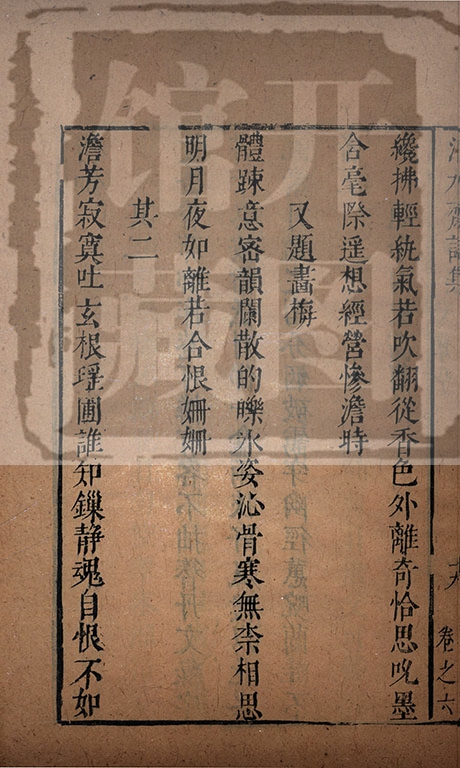 纔拂輕紈氣若吹翻從香色外離奇恰思吮墨
含毫際遥想經營慘澹時
又題畫梅
體踈意密韻闌散的皪氷姿沁骨寒無柰相思
明月夜如離若合恨姍姍
其二
澹芳寂寞吐玄根瑶圃誰知鏁静魂自恨不如
卷之六